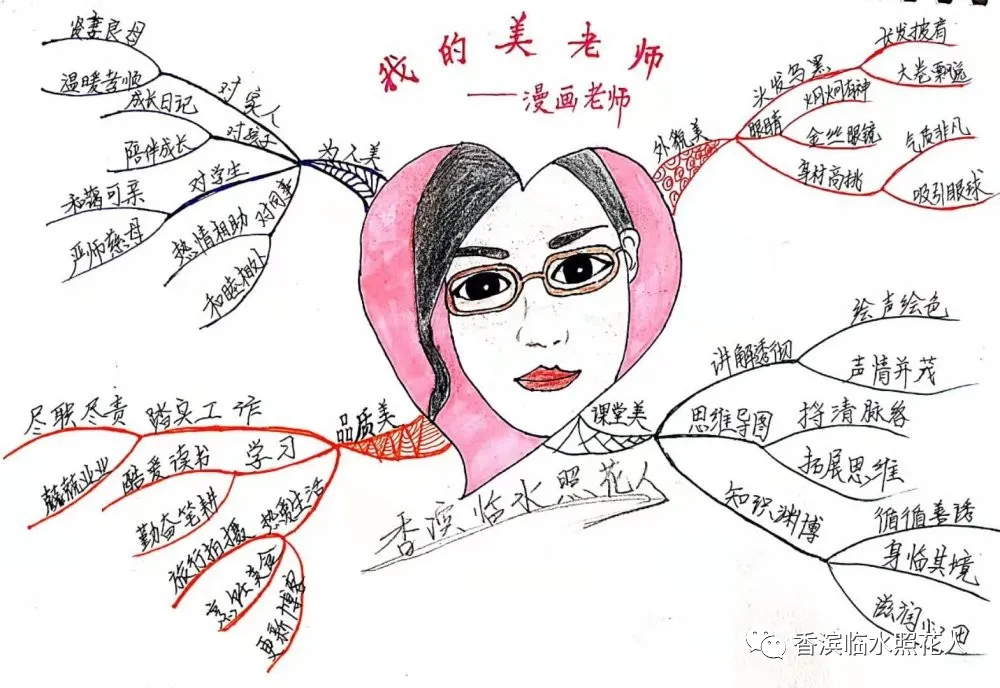 我的美老师
——漫画老师
为人美
对家人
贤妻良母
温暖孝顺
对孩子
成长日记
陪伴成长
对学生
和蔼可亲
严师慈母
对同事
热情相助
和睦相处
外貌美
头发乌黑
长发披肩
大卷飘逸
眼睛
炯炯有神
金丝眼镜
身材高挑
气质非凡
吸引眼球
课堂美
讲解透彻
绘声绘色
声情并茂
思维导图
捋清脉络
拓展思维
知识渊博
循循善诱
身临其境
滋润心田
品质美
踏实工作
尽职尽责
兢兢业业
学习
酷爱读书
勤奋笔耕
热爱生活
旅行拍摄
烹饪美食
更新博客
香滨临水照花人
香滨临水照花